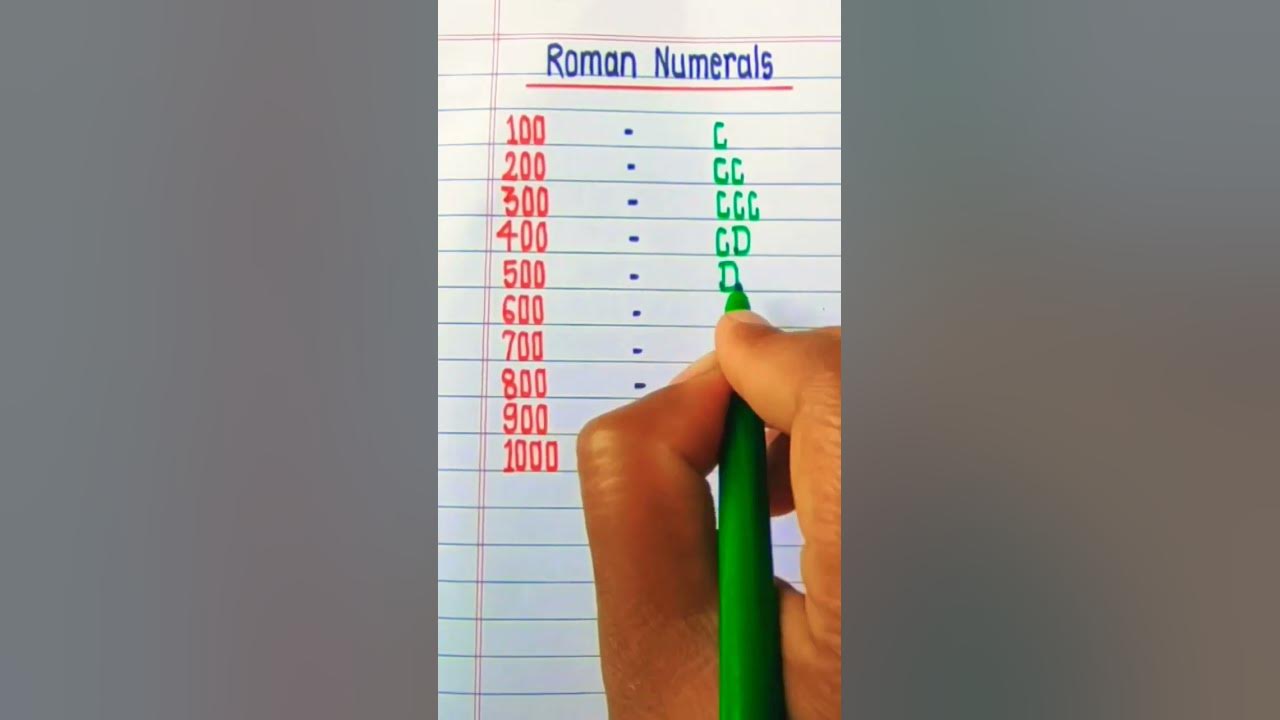 Roman Numerals
100 - C
200 - CC
300 - CCC
400 - CD
500 - D
600 -
700 -
800 -
900
1000